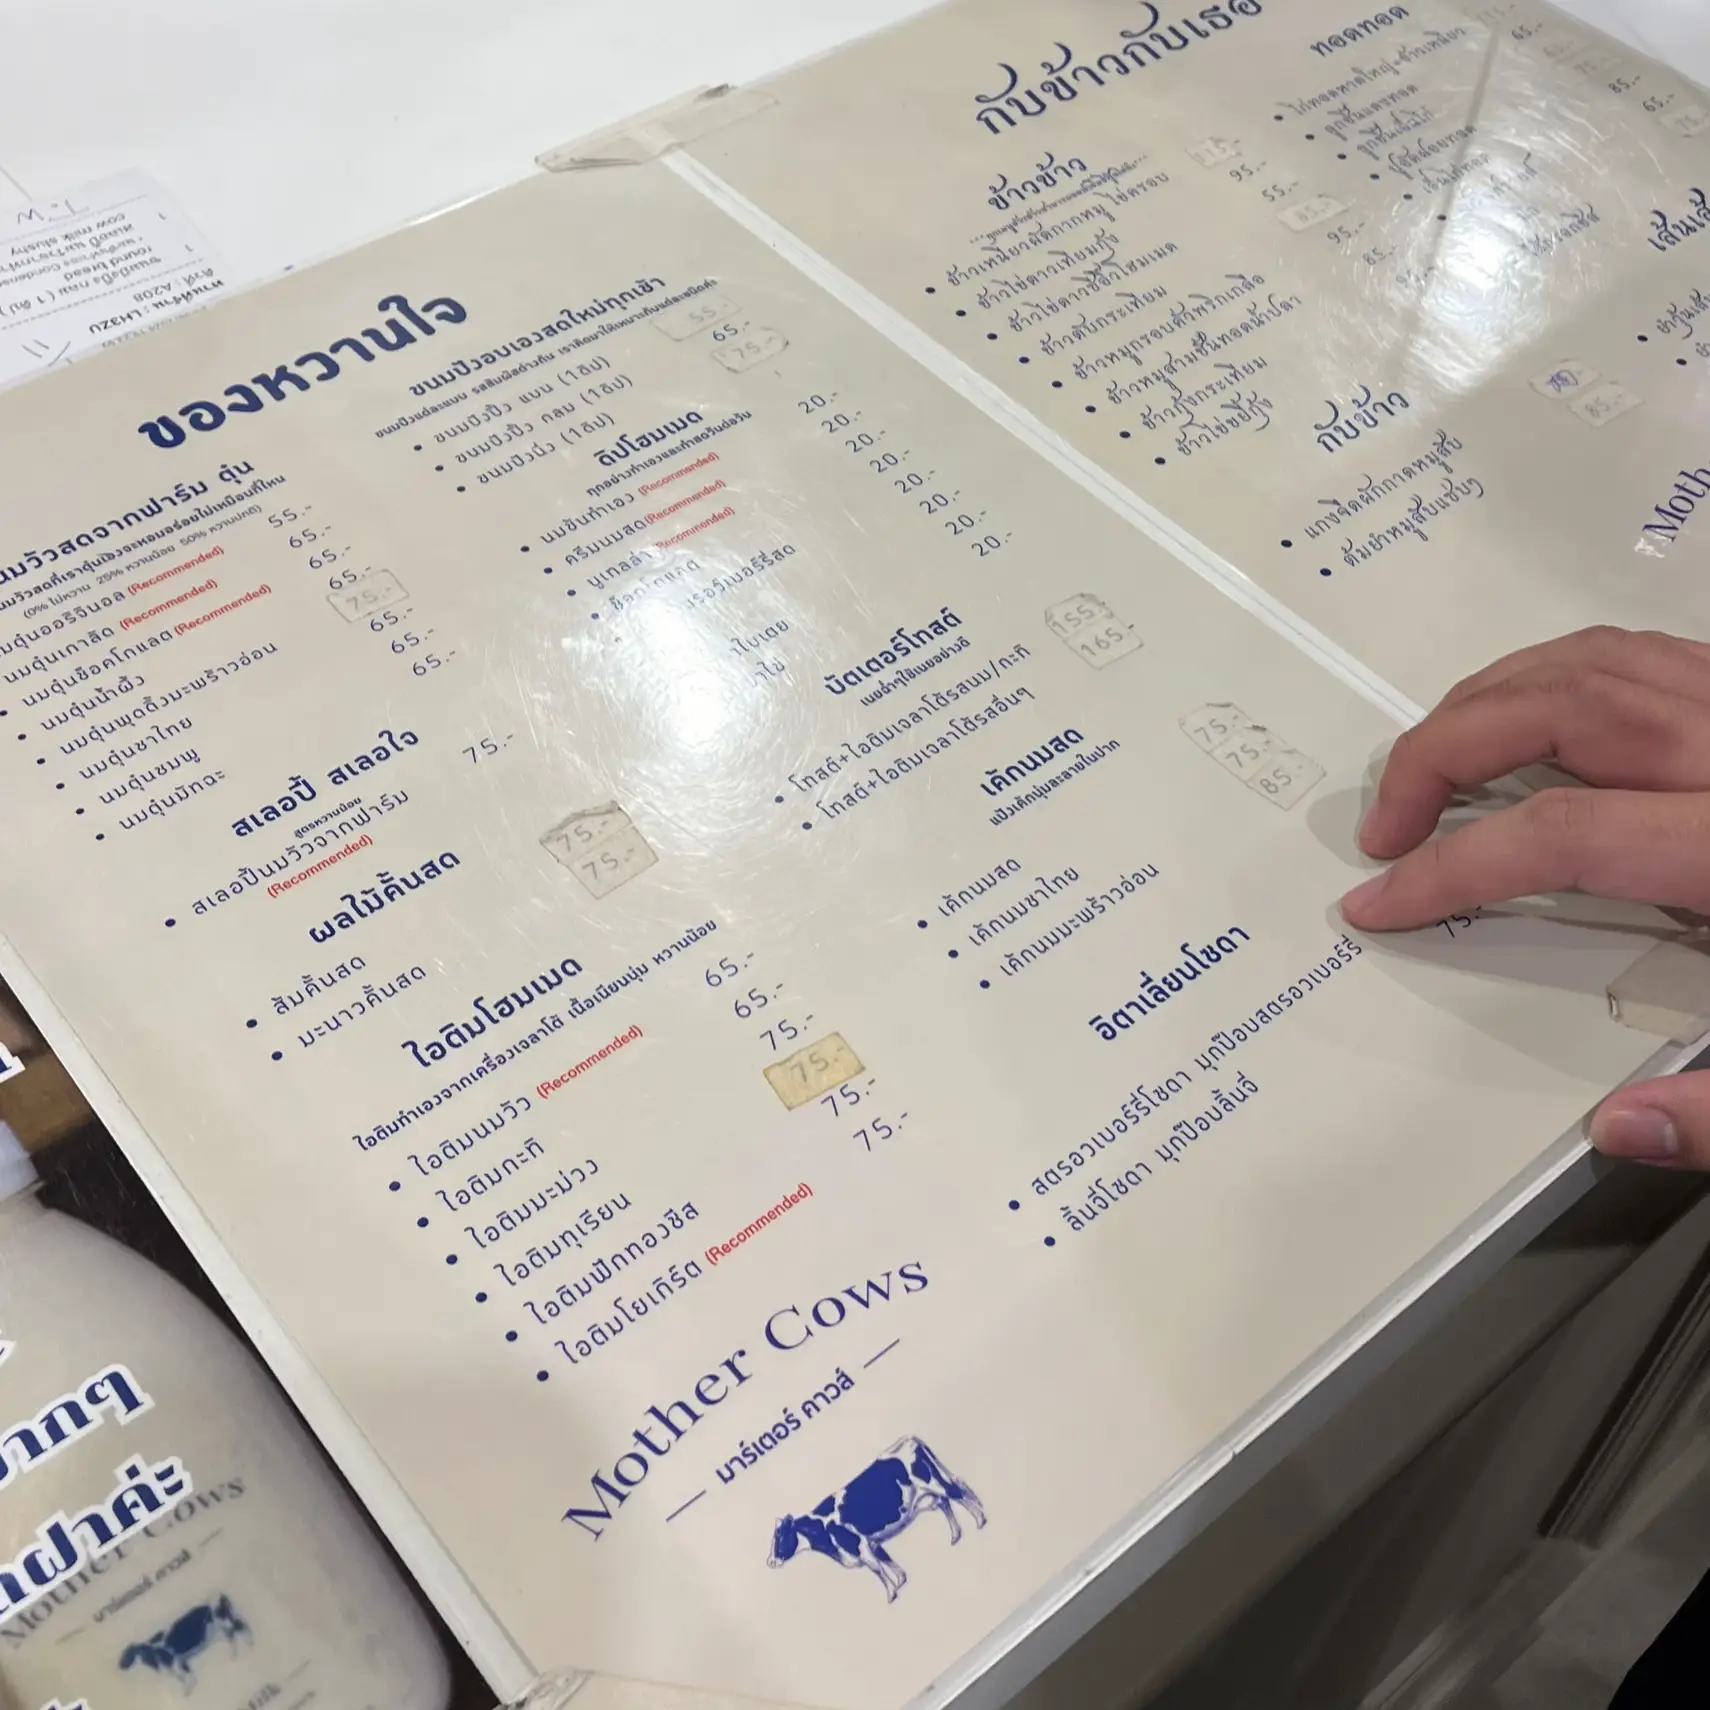 ของหวานใจ
นมวัวสดจากฟาร์ม ตุ๋น
นมวัวสดที่เราตุ๋นเองจะหอมอร่อยไม่เหมือนที่ไหน
(0% ไม่หวาน 25% หวานน้อย 50% หวานปกติ)
นมตุ๋นออริจินอล (Recommended) 55.-
นมตุ๋นเกาลัด (Recommended) 65.-
• นมตุ๋นช็อคโกแลต (Recommended) 65.-
• นมตุ๋นน้ำผึ้ง 75.-
• นมตุ๋นพุดดิ้งมะพร้าวอ่อน 65.-
• นมตุ๋นชาไทย 65.-
• นมตุ๋นชมพู 65.-
• นมตุ๋นมัทฉะ
สเลอปี้ สเลอใจ
สูตรหวานน้อย
• สเลอปี้นมวัวจากฟาร์ม 75.-
(Recommended)
ผลไม้คั้นสด
• ส้มคั้นสด 75.-
• มะนาวคั้นสด 75.-
ไอติมโฮมเมด
ไอติมทำเองจากเครื่องเจลาโต้ เนื้อเนียนนุ่ม หวานน้อย
• ไอติมนมวัว (Recommended) 65.-
• ไอติมกะทิ 65.-
• ไอติมมะม่วง 75.-
• ไอติมทุเรียน 75.-
• ไอติมฟักทองชีส 75.-
• ไอติมโยเกิร์ต (Recommended) 75.-
Mother Cows
— มาร์เตอร์ คาวส์ —
ขนมปังอบเองสดใหม่ทุกเช้า
ขนมปังแต่ละแบบ รสสัมผัสต่างกัน เราคิดมาให้เหมาะกับแต่ละชนิดค่ะ
• ขนมปังปิ้ง แบน (1ดิป) 55.-
• ขนมปังปิ้ง กลม (1ดิป) 65.-
• ขนมปังนึ่ง (1ดิป) 75.-
ดิปโฮมเมด
ทุกอย่างทำเองและทำสดวันต่อวัน
• นมข้นทำเอง (Recommended) 20.-
• ครีมนมสด (Recommended) 20.-
• นูเทลล่า (Recommended) 20.-
• ช็อกโกแลต 20.-
รอว์เบอร์รี่สด 20.-
ใบเตย 20.-
าไข่ 20.-
บัตเตอร์โทสต์
เนยฉ่ำๆใช้เนยอย่างดี
• โทสต์+ไอติมเจลาโต้รสนม/กะทิ 155.-
• โทสต์+ไอติมเจลาโต้รสอื่นๆ 165.-
เค้กนมสด
แป้งเค้กนุ่มละลายในปาก
• เค้กนมสด 75.-
• เค้กนมชาไทย 75.-
• เค้กนมมะพร้าวอ่อน 85.-
อิตาเลี่ยนโซดา
• สตรอวเบอร์รี่โซดา มุกป๊อบสตรอวเบอร์รี่ 75.-
• ลิ้นจี่โซดา มุกป๊อบลิ้นจี่
กับข้าวกับเธอ
ข้าวข้าว
• ข้าวเหนียวผัดกากหมู ไข่ครอบ 115.-
• ข้าวไข่ดาวเทียมกุ้ง 95.-
• ข้าวไข่ดาวซีอิ๊วโฮมเมด 55.-
• ข้าวตับกระเทียม 85.-
• ข้าวหมูกรอบคั่วพริกเกลือ 95.-
• ข้าวหมูสามชั้นทอดน้ำปลา 85.-
• ข้าวกุ้งกระเทียม
• ข้าวไข่ขยี้กุ้ง
กับข้าว
• แกงจืดผักกาดหมูสับ
• ต้มยำหมูสับแซ่บๆ 85.-
ทอดทอด
• ไก่ทอดหาดใหญ่+ข้าวเหนียว
• ลูกชิ้นแคระทอด 65.-
• ลูกชิ้นเอ็นไก่
• ปูอัดฝอยทอด 85.-
• เอ็นไก่ทอด 65.-
75.-
เส้นเส้
Moth
Mother Cows
มาร์เตอร์ คาวส์
ากๆ
ฝาค่ะ
คิวที่ A208
ขนมปังปิ้ง กลม (1 ดิป)
round bread
cow milk slushy